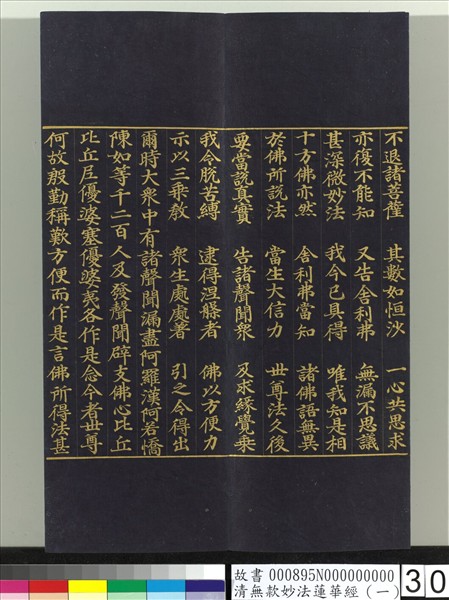 不退諸菩薩　其數如恒沙　一心共思求
亦復不能知　又告舍利弗　無漏不思議
甚深微妙法　我今已具得　唯我知是相
十方佛亦然　舍利弗當知　諸佛語無異
於佛所說法　當生大信力　世尊法久後
要當說真實　告諸聲聞眾　及求緣覺乗
我令脫苦縛　逮得涅槃者　佛以方便力
示以三乗教　眾生處處著　引之令得出
爾時大眾中有諸聲聞漏盡阿羅漢阿若憍
陳如等千二百人及發聲聞辟支佛心比丘
比丘尼優婆塞優婆夷各作是念今者世尊
何故殷勤稱歎方便而作是言佛所得法甚
故書 000895N000000000
清無款妙法蓮華經（一）
30